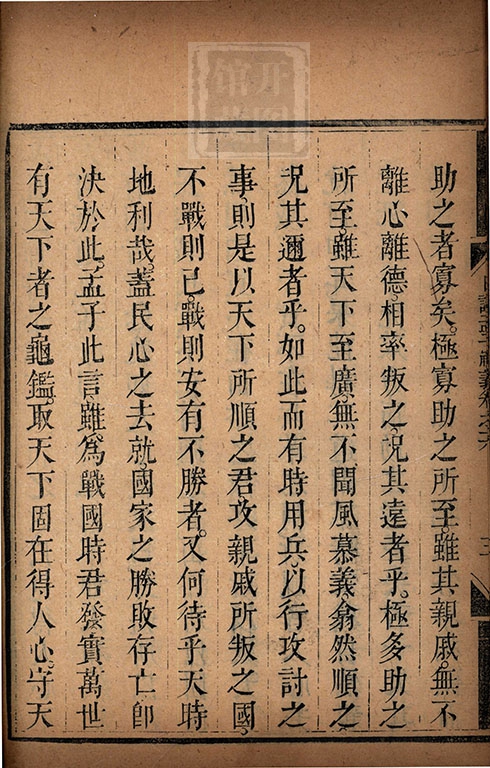 助之者寡矣。極寡助之所至。雖其親戚。無不
離心離德。相率叛之。况其遠者乎。極多助之
所至。雖天下至廣。無不聞風慕義。翕然順之。
况其邇者乎。如此而有時用兵。以行攻討之
事。則是以天下所順之君。攻親戚所叛之國。
不戰則已。戰則安有不勝者。又何待乎天時
地利哉。蓋民心之去就。國家之勝敗存亡卽
決於此。孟子此言。雖爲戰國時君發。實萬世
有天下者之龜鑑。取天下固在得人心。守天